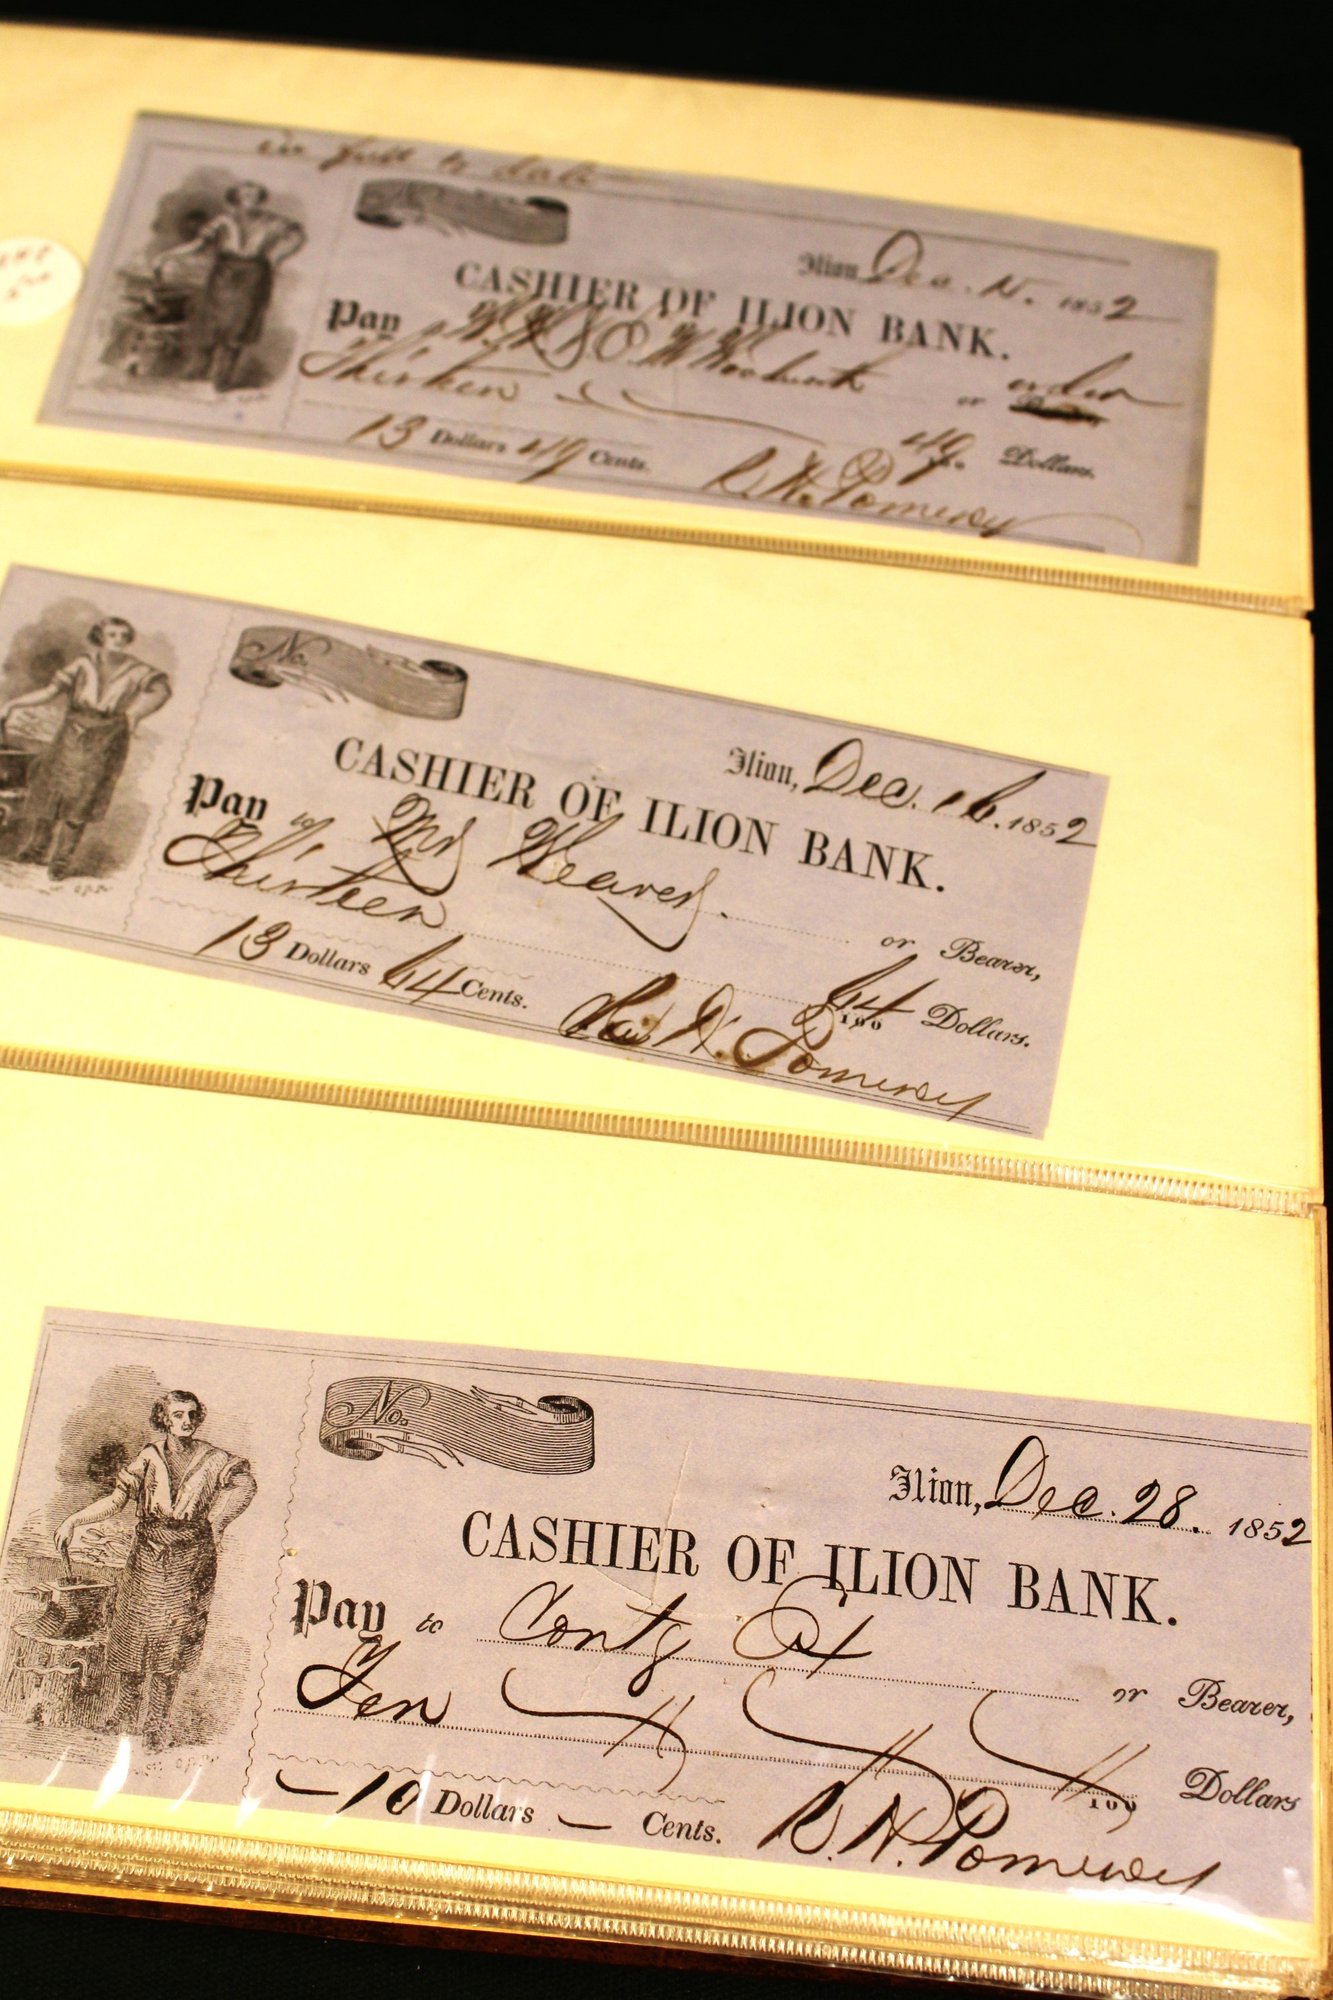 in full to date
Ilion, Dec. 1852
CASHIER OF ILION BANK.
Pay or order
Thirteen 49 Dollars.
13 Dollars 49 Cents.
R. H. Pomeroy
No.
Ilion, Dec. 16. 1852
CASHIER OF ILION BANK.
Pay to Mr Weaver. or Bearer,
Thirteen 64/100 Dollars.
13 Dollars 64 Cents.
H. Pomeroy
No.
Ilion, Dec. 28. 1852
CASHIER OF ILION BANK.
Pay to or Bearer,
Ten 100 Dollars
10 Dollars Cents.
R. H. Pomeroy